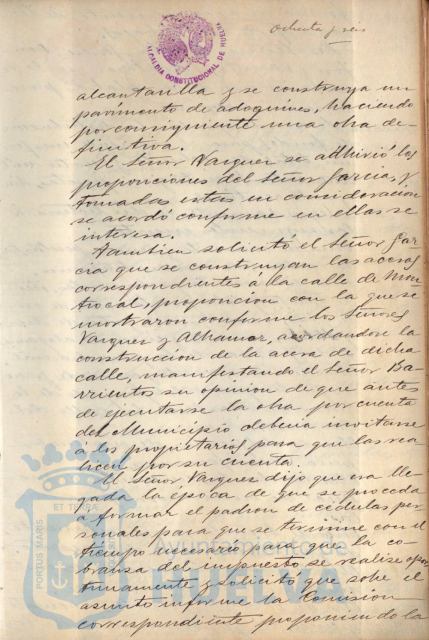 Ochenta y seis
ALCALDIA CONSTITUCIONAL DE HUELVA
alcantarilla y se construya un
pavimento de adoquines, haciendo
por consiguiente una obra de-
finitiva.
El Señor Vazquez se adhirió á las
proposiciones del Señor Garcia, y
tomadas estas en consideracion
se acordó conforme en ellas se
interesa.
Tambien solicitó el Señor Gar-
cia que se construyan las aceras
correspondientes á la calle de Mon-
trocal, proposicion con la que se
mostraron conforme los Señores
Vazquez y Alhamar, acordandose la
construccion de la acera de dicha
calle, manifestando el Señor Ba-
rrientos su opinion de que antes
de ejecutarse la obra por cuenta
del Municipio deberia invitarse
á los propietarios para que las rea-
licen por su cuenta.
El Señor Vazquez dijo que era lle-
gada la época de que se proceda
a formar el padron de cédulas per-
sonales para que se termine con el
tiempo necesario para que la co-
branza del impuesto se realize opor-
tunamente y solicitó que sobre el
asunto informe la Comision
correspondiente proponiendo la
PORTUS MARIS
ET TERRÆ
Ayuntamiento de
HUELVA